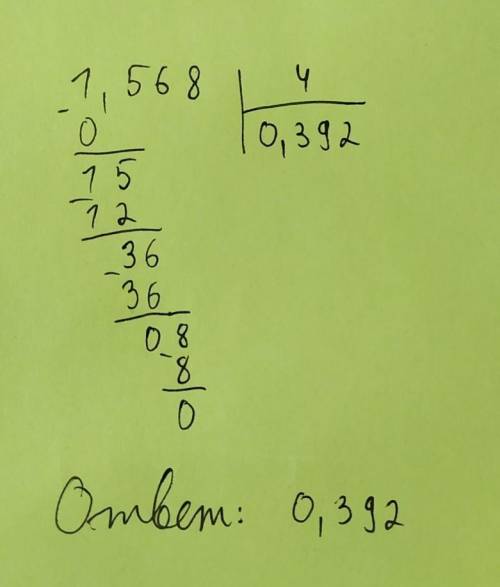 - 1,568 | 4
0 0,392
15
- 12
36
- 36
08
- 8
0
Ответ: 0,392